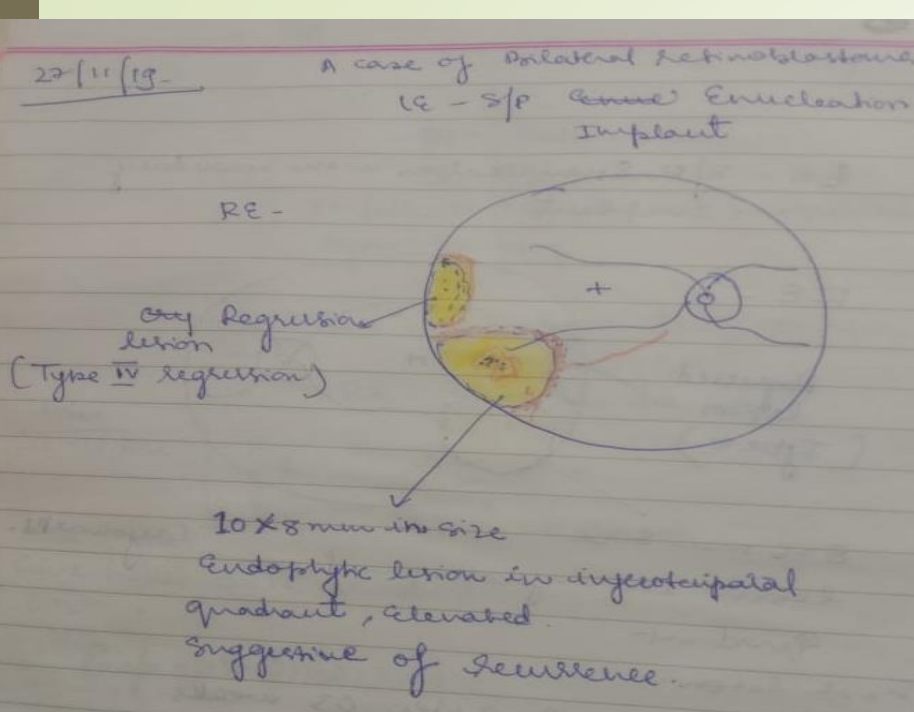 27/11/19
A case of Bilateral Retinoblastoma
LE - S/P Enucleation
Implant
RE -
Regression
lesion
(Type IV regression)
10 x 8 mm in size
Endophytic lesion in inferotemporal
quadrant, elevated.
Suggestive of recurrence.